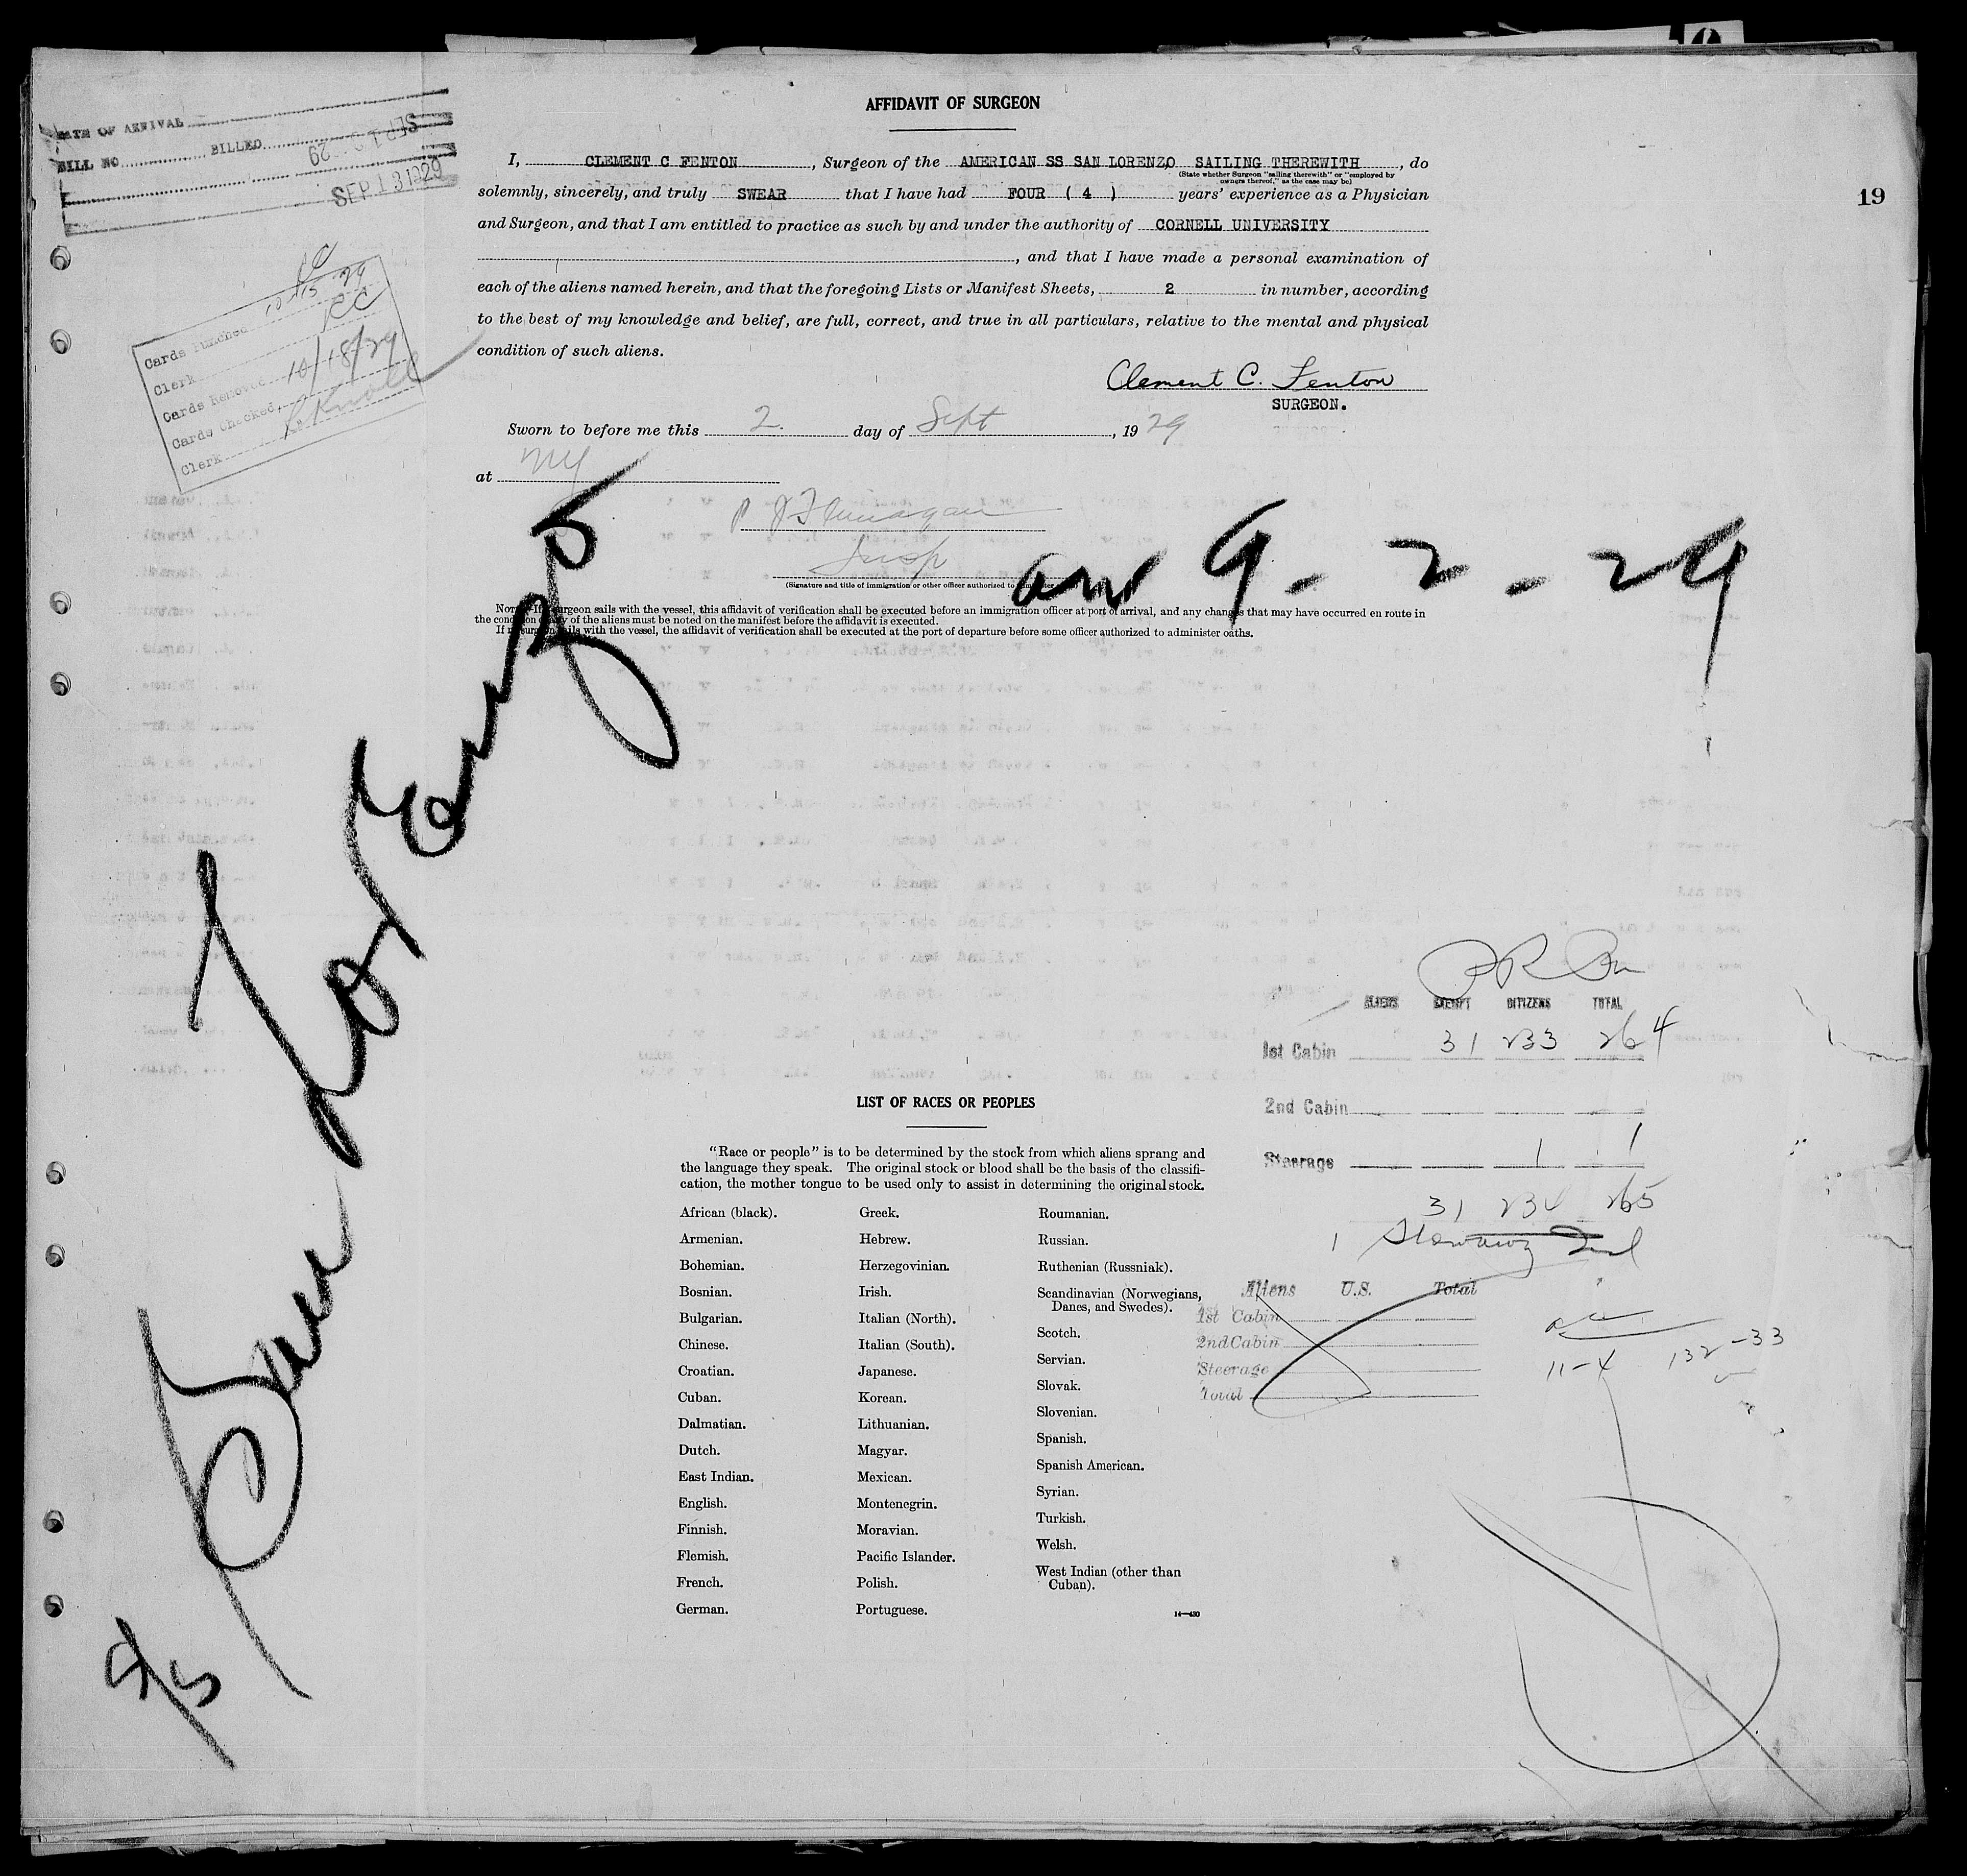 AFFIDAVIT OF SURGEON
DATE OF ARRIVAL
BILL NO. BILLED SEP 1 29
SEP 13 1929
I, CLEMENT C FENTON, Surgeon of the AMERICAN SS SAN LORENZO SAILING THEREWITH, do
(State whether Surgeon "sailing therewith" or "employed by
owners thereof," as the case may be)
solemnly, sincerely, and truly SWEAR that I have had FOUR ( 4 ) years' experience as a Physician
19
and Surgeon, and that I am entitled to practice as such by and under the authority of CORNELL UNIVERSITY
, and that I have made a personal examination of
each of the aliens named herein, and that the foregoing Lists or Manifest Sheets, 2 in number, according
to the best of my knowledge and belief, are full, correct, and true in all particulars, relative to the mental and physical
condition of such aliens.
Clement C. Fenton
SURGEON.
Cards Punched 10/15 29
Clerk RC
Cards Removed 10/18/29
Cards Checked
Clerk
Sworn to before me this 2 day of Sept, 1929
at NY
P J Flannagan
Insp
(Signature and title of immigration or other officer authorized to administer
arr 9 - 2 - 29
NOTE.—If surgeon sails with the vessel, this affidavit of verification shall be executed before an immigration officer at port of arrival, and any changes that may have occurred en route in
the condition of any of the aliens must be noted on the manifest before the affidavit is executed.
If no surgeon sails with the vessel, the affidavit of verification shall be executed at the port of departure before some officer authorized to administer oaths.
S/S San Lorenzo
ALIENS EXEMPT CITIZENS TOTAL
1st Cabin 31 233 264
2nd Cabin
Steerage 1 1
31 234 265
1 Stowaway
Aliens U.S. Total
1st Cabin
2nd Cabin
Steerage
Total
11-4 132-33
LIST OF RACES OR PEOPLES
"Race or people" is to be determined by the stock from which aliens sprang and
the language they speak. The original stock or blood shall be the basis of the classifi-
cation, the mother tongue to be used only to assist in determining the original stock.
African (black).
Armenian.
Bohemian.
Bosnian.
Bulgarian.
Chinese.
Croatian.
Cuban.
Dalmatian.
Dutch.
East Indian.
English.
Finnish.
Flemish.
French.
German.
Greek.
Hebrew.
Herzegovinian.
Irish.
Italian (North).
Italian (South).
Japanese.
Korean.
Lithuanian.
Magyar.
Mexican.
Montenegrin.
Moravian.
Pacific Islander.
Polish.
Portuguese.
Roumanian.
Russian.
Ruthenian (Russniak).
Scandinavian (Norwegians,
Danes, and Swedes).
Scotch.
Servian.
Slovak.
Slovenian.
Spanish.
Spanish American.
Syrian.
Turkish.
Welsh.
West Indian (other than
Cuban).
14—430